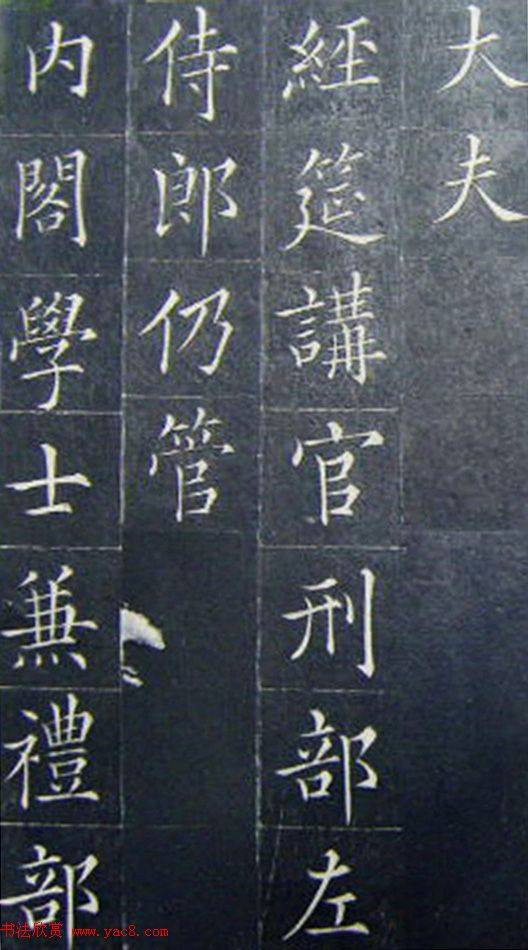 大夫
經筵講官刑部左
侍郎仍管
内閣學士兼禮部
书法欣赏 www.yac8.com